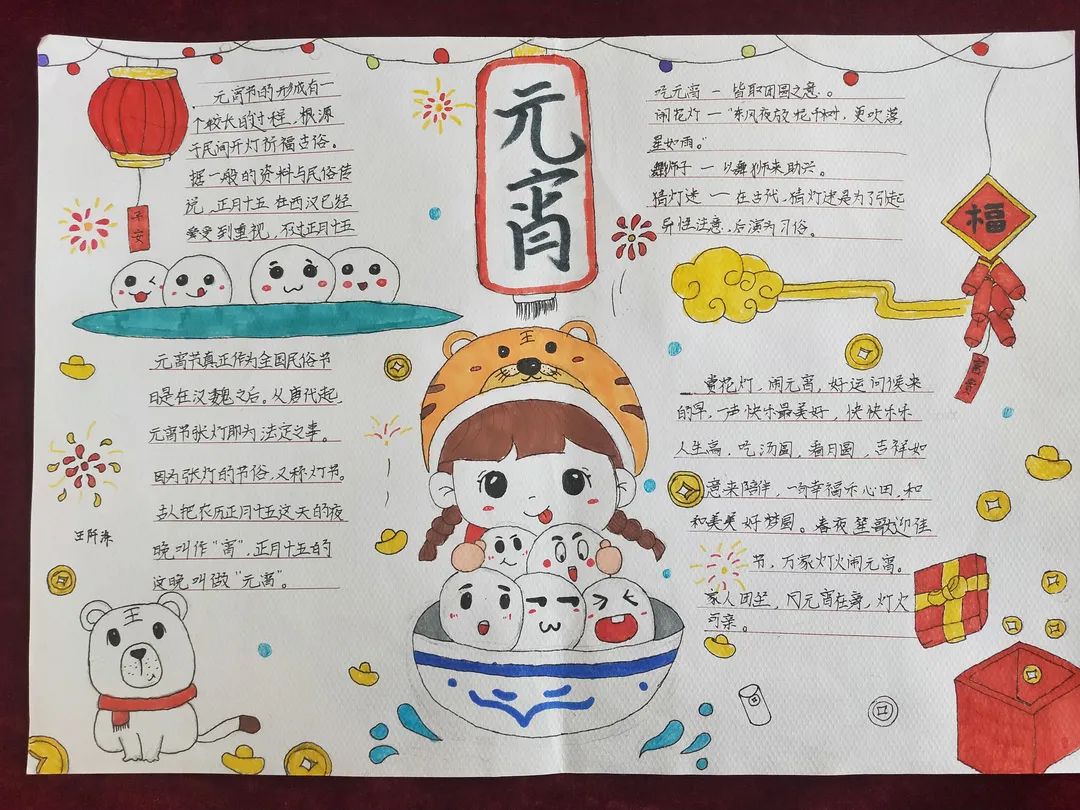 元宵
元宵节的形成有一
个较长的过程，根源
于民间开灯祈福古俗。
据一般的资料与民俗传
说，正月十五在西汉已经
受到重视，不过正月十五
平安
元宵节真正作为全国民俗节
日是在汉魏之后。从唐代起，
元宵节张灯即为法定之事。
因为张灯的节俗，又称灯节。
古人把农历正月十五这天的夜
晚叫作“宵”，正月十五的
这晚，叫做“元宵”。
王
王
吃元宵一皆取团圆之意。
闹花灯一“东风夜放花千树，更吹落，
星如雨。”
舞狮子一以舞狮来助兴。
猜灯迷一在古代，猜灯迷是为了引起
异性注意，后演为习俗。
福
富贵
赏花灯，闹元宵，好运问候来
的早，一声快乐最美好，快快乐乐
人生高，吃汤圆，看月圆，吉祥如
意来陪伴，一句幸福乐心田，和
和美美好梦圆。春夜笙歌迎佳
节，万家灯火闹元宵。
家人团坐，闪元宵在舞，灯火
可亲。